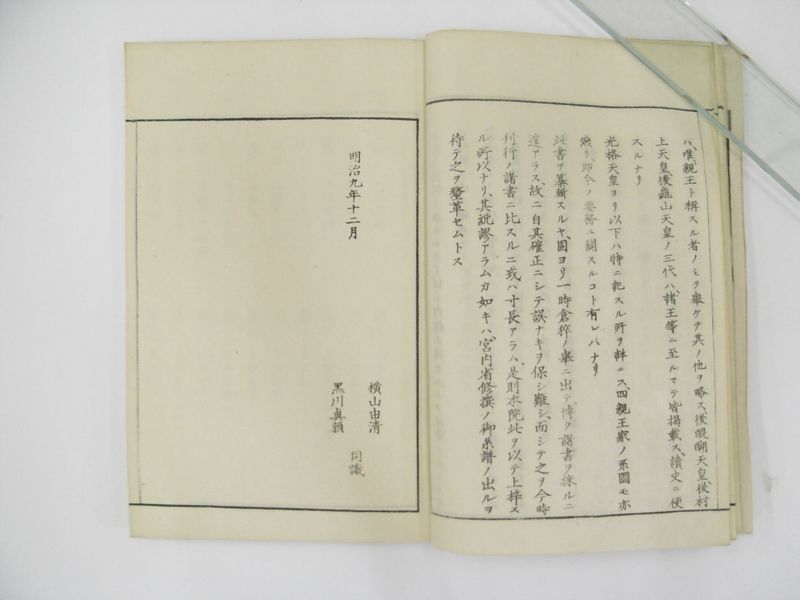 ハ、唯親王ト稱スル者ノミヲ擧ケテ其ノ他ヲ略ス、後醍醐天皇後村
上天皇後龜山天皇ノ三代ハ、諸王等ニ至ルマテ皆掲載ス、讀史ニ便
スルナリ
光格天皇ヨリ以下ハ特ニ記スル所ヲ詳ニス、四親王家ノ系圖モ亦
然リ、即今ノ要務ニ關スルコト有レハナリ
此書ヲ纂輯スルヤ、固ヨリ一時倉猝ノ擧ニ出テ、博ク諸書ヲ採ルニ
遑アラス、故ニ自其確正ニシテ誤ナキヲ保シ難シ、而シテ之ヲ今時
刊行ノ諸書ニ比スルニ或ハ寸長アラム、是則本院此ヲ以テ上梓ス
ル所以ナリ、其紕謬アラムカ如キハ、宮内省修撰ノ御系譜ノ出ルヲ
待テ之ヲ釐革セムトス
明治九年十二月
橫山由清
黒川眞頼
同識